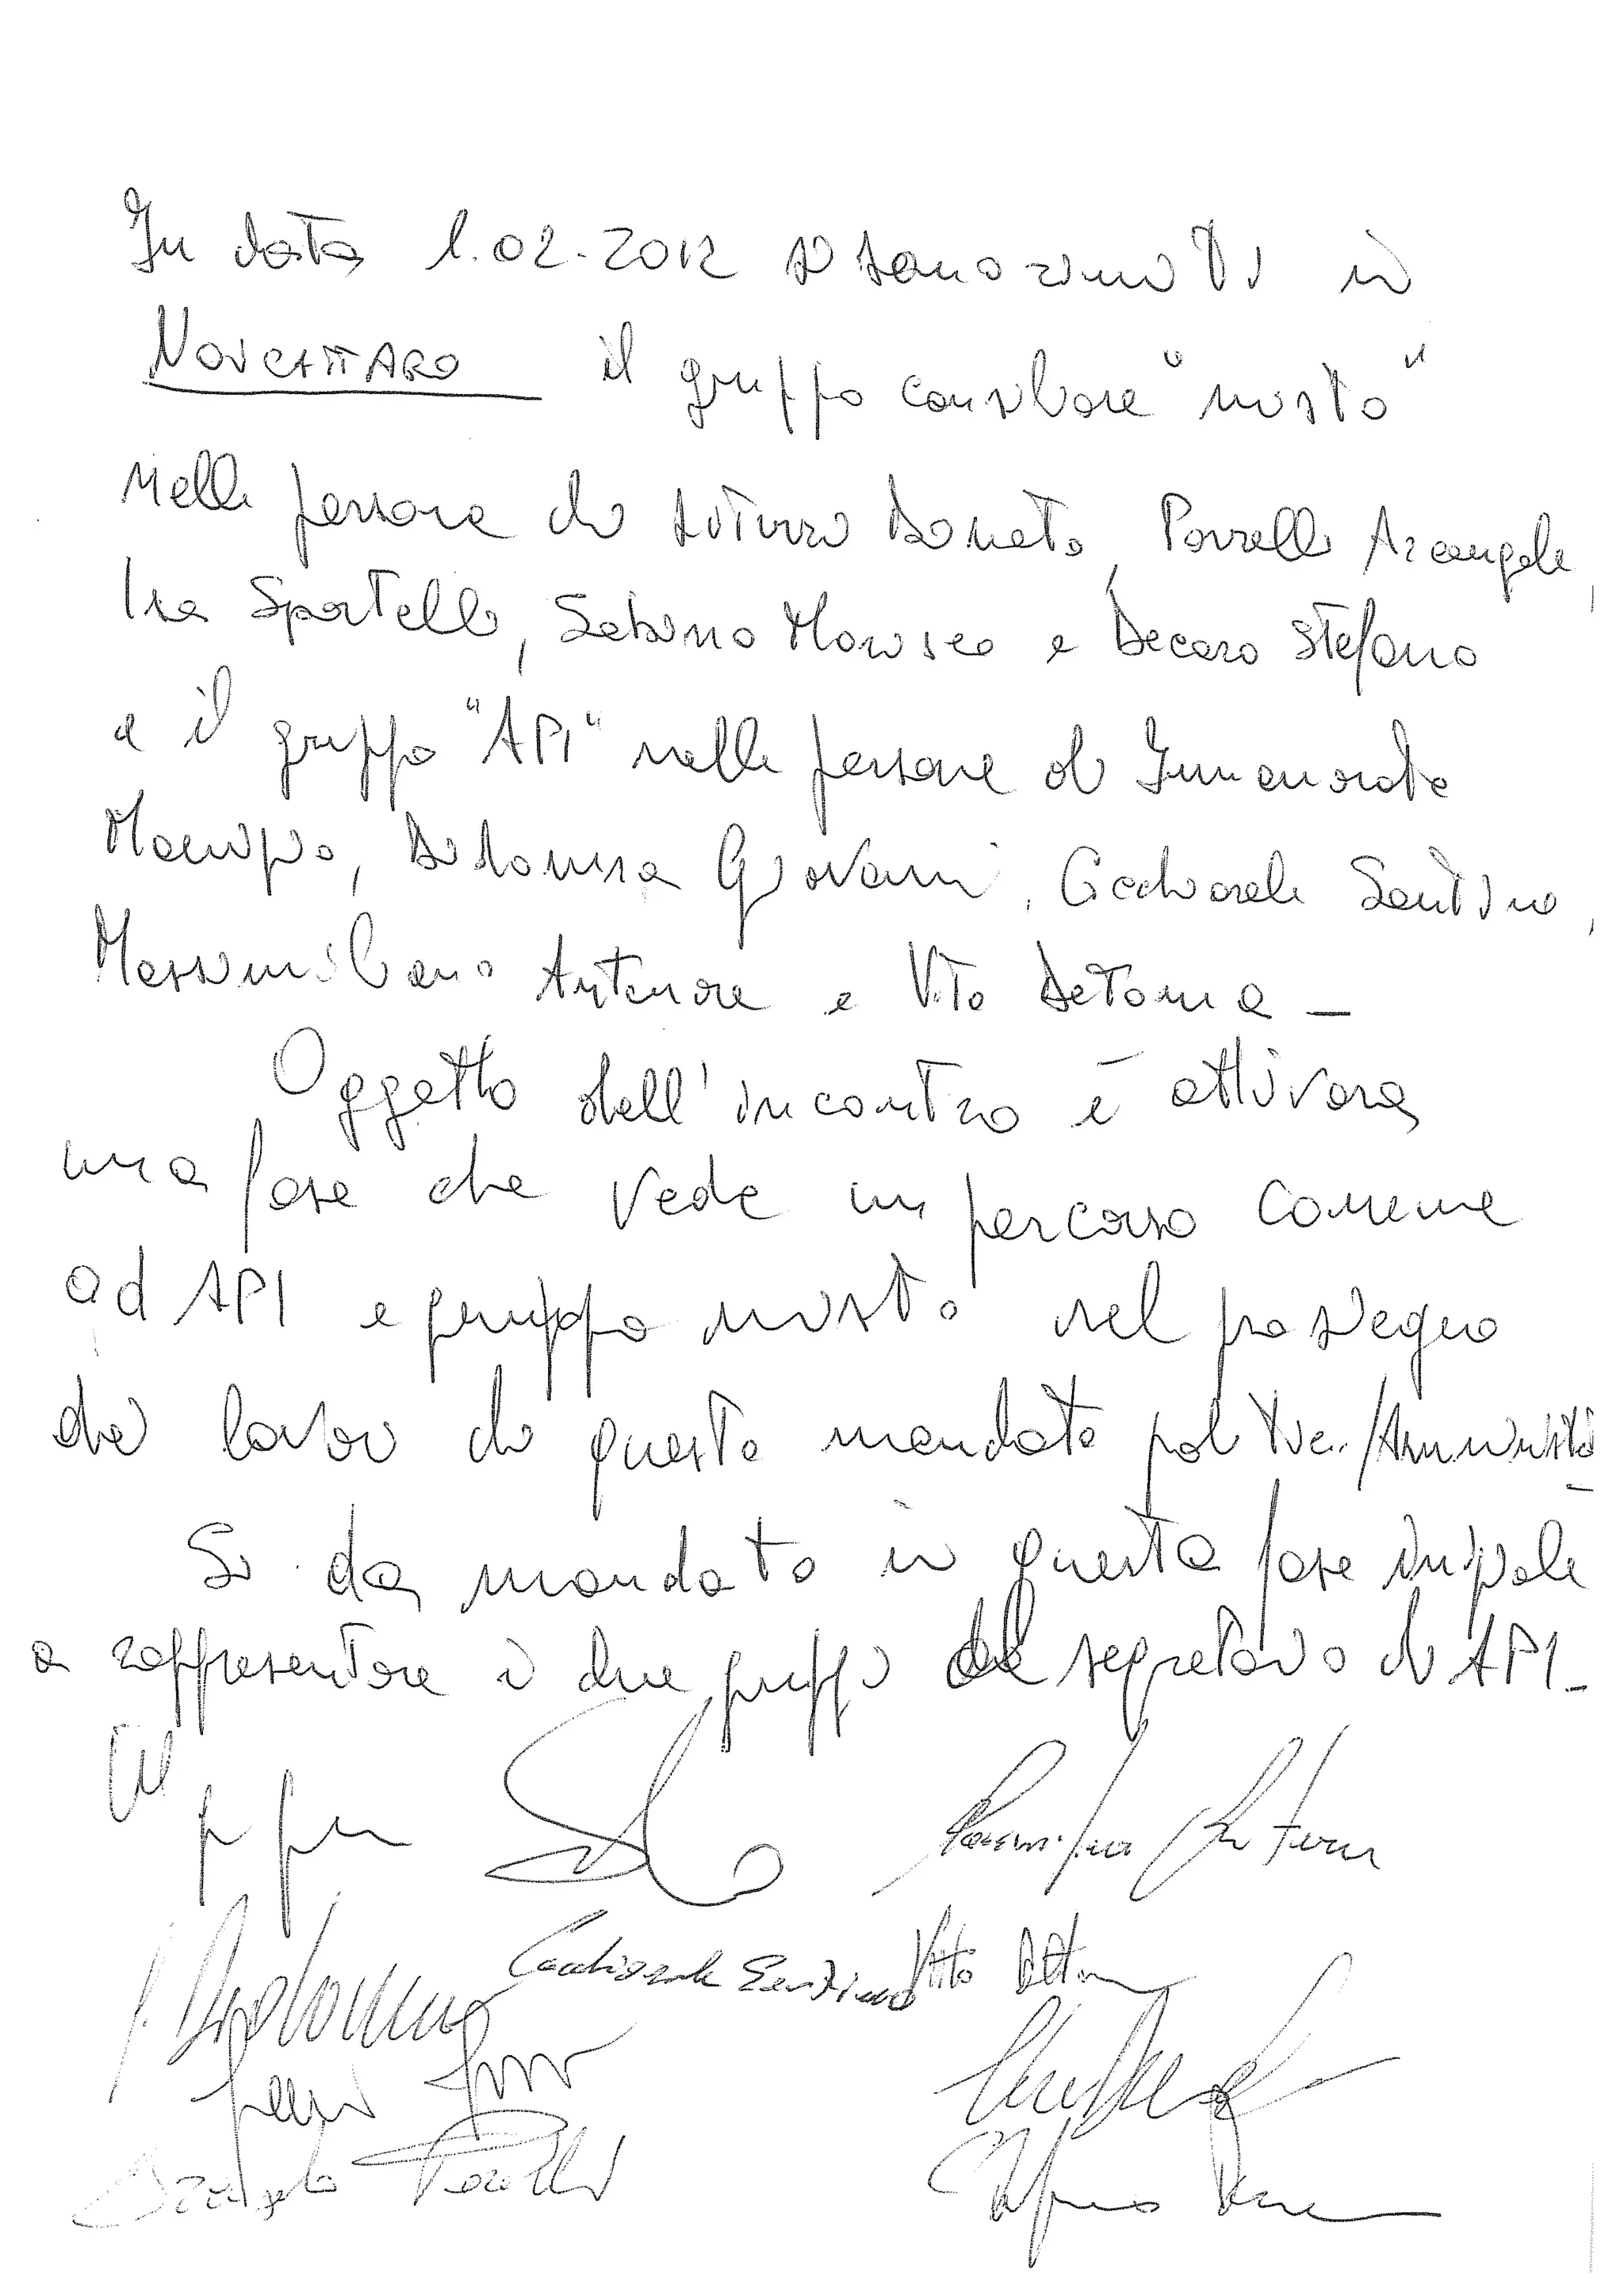 In data 1.02.2012 si sono riuniti in
NOICATTARO il gruppo consiliare "misto"
nelle persone di Diturri Donato, Porrelli Arcangelo,
Isa Sportelli, Sabino Morisco e Decaro Stefano
e il gruppo "API" nelle persone di Immacolata
Giovanni, Cacchiorale Santino,
Massimiliano Antenore e Vito Detoma -
Oggetto dell'incontro è attivare
una fase che vede un percorso comune
ad API e gruppo misto nel prosieguo
dei lavori di questo mandato politico/Amminist.
Si da mandato in questa fase iniziale
a rappresentare i due gruppi al segretario di API -
Vito